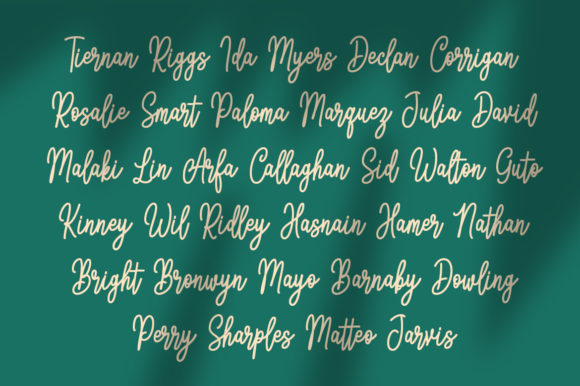 Tiernan Riggs Ida Myers Declan Corrigan
Rosalie Smart Paloma Marquez Julia David
Malaki Lin Arfa Callaghan Sid Walton Guto
Kinney Wil Ridley Hasnain Hamer Nathan
Bright Bronwyn Mayo Barnaby Dowling
Perry Sharples Matteo Jarvis